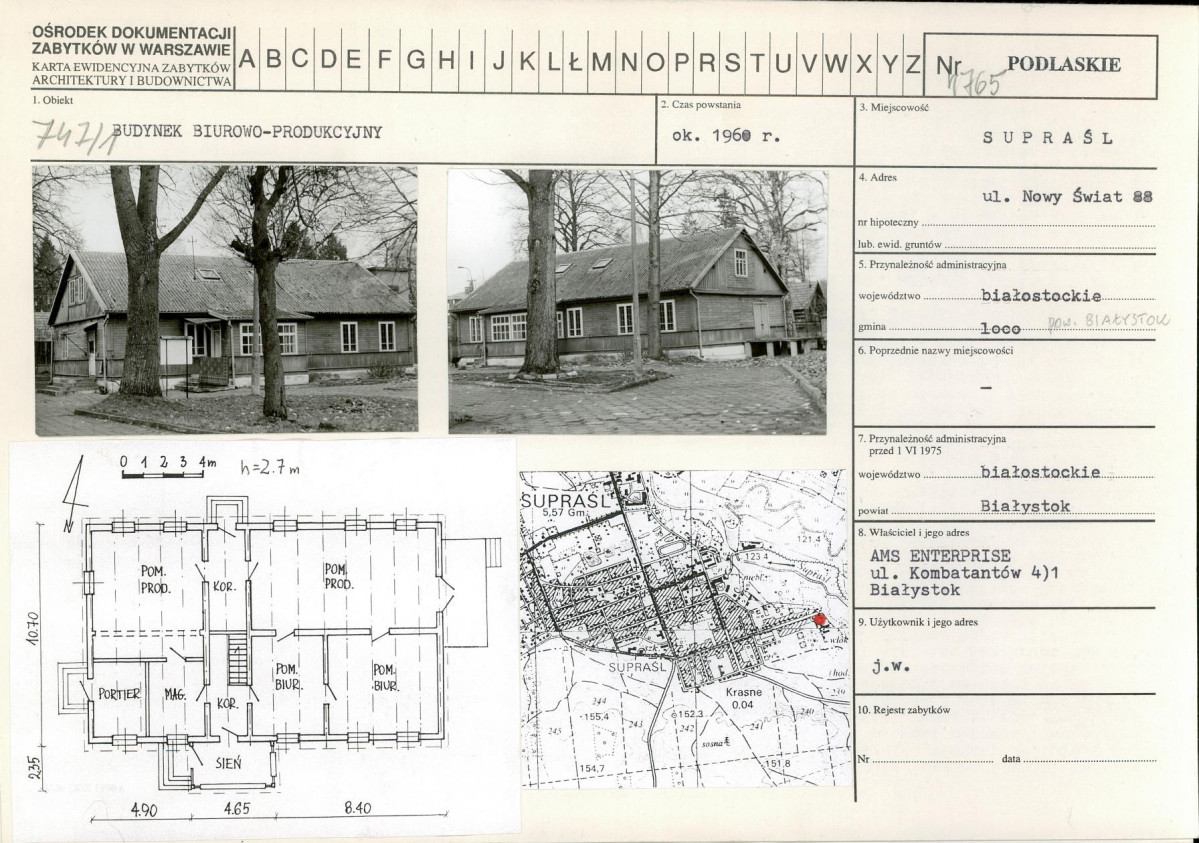 OŚRODEK DOKUMENTACJI
ZABYTKÓW W WARSZAWIE
KARTA EWIDENCYJNA ZABYTKÓW
ARCHITEKTURY I BUDOWNICTWA
A B C D E F G H I J K L Ł M N O P R S T U V W X Y Z
Nr 1765 PODLASKIE
1. Obiekt
747/1 BUDYNEK BIUROWO-PRODUKCYJNY
2. Czas powstania
ok. 1960 r.
3. Miejscowość
SUPRAŚL
4. Adres
ul. Nowy Świat 88
nr hipoteczny
lub. ewid. gruntów
5. Przynależność administracyjna
województwo białostockie
gmina loco POW. BIAŁYSTOK
6. Poprzednie nazwy miejscowości
—
7. Przynależność administracyjna
przed 1 VI 1975
województwo białostockie
powiat Białystok
8. Właściciel i jego adres
AMS ENTERPRISE
ul. Kombatantów 4)1
Białystok
9. Użytkownik i jego adres
j.w.
10. Rejestr zabytków
Nr data
0 1 2 3 4m
h=2.7m
N
POM.
PROD.
KOR.
POM.
PROD.
PORTIER
MAG.
1
KOR.
POM.
BIUR.
POM.
BIUR.
SIEŃ
10.70
2.35
4.90 4.65 8.40
SUPRAŚL
5,57 Gm.
121.4
123.4
mebl.
Supraśl
włók
SUPRAŚL
Krasne
0.04
hod.
239
244
155.4
243
152.3
242
241
240
245
sosna
154,7
151.8